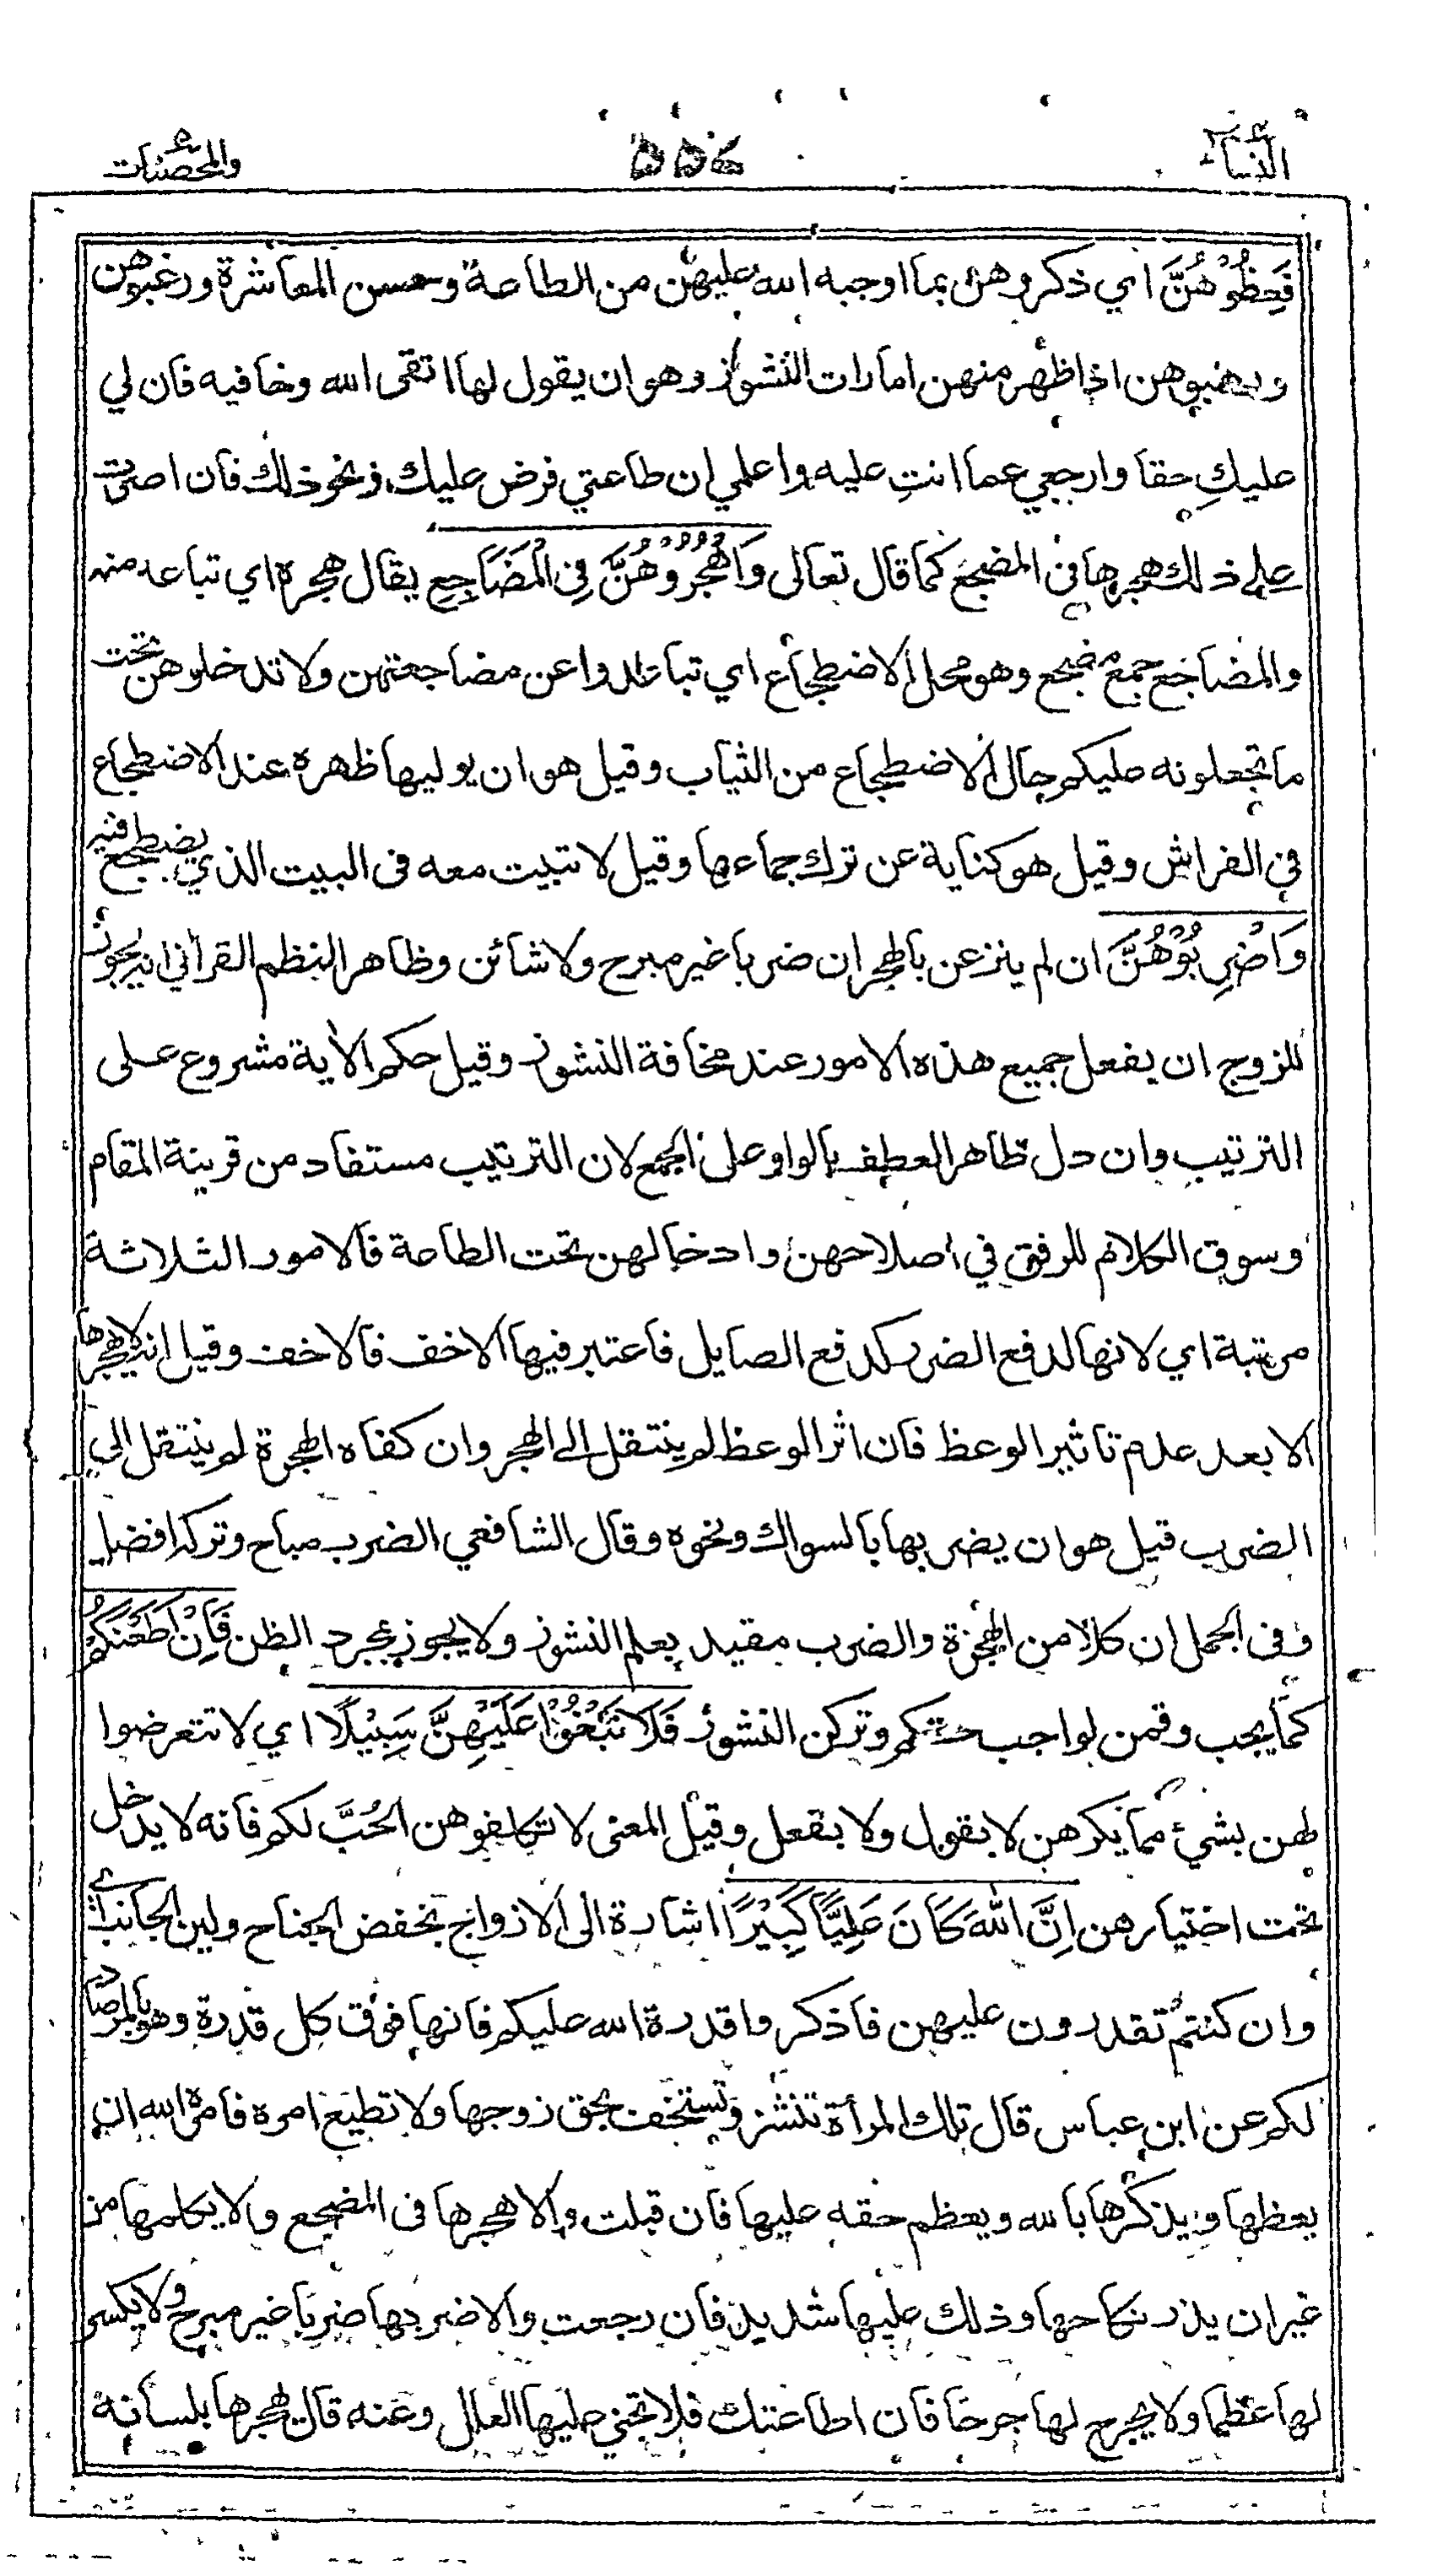 النسآء ٥٥٤ والمحصنات
فَعِظُوْهُنَّ اي ذكروهن بما اوجبه الله عليهن من الطاعة وحسن المعاشرة ورغبوهن
ورهبوهن اذا ظهر منهن امارات النشوز وهو ان يقول لها اتقى الله وخافيه فان لي
عليكِ حقا وارجعي عما انتِ عليه واعلمي ان طاعتي فرض عليك ونحو ذلك فان اصرت
على ذلك هجرها فى المضجع كما قال تعالى وَاهْجُرُوْهُنَّ فِى الْمَضَاجِعِ يقال هجرة اي تباعد منه
والمضاجع جمع مضجع وهو محل الاضطجاع اي تباعدوا عن مضاجعتهن ولا تدخلوهن تحت
ما تجعلونه عليكم حال الاضطجاع من الثياب وقيل هو ان يوليها ظهره عند الاضطجاع
فى الفراش وقيل هو كناية عن ترك جماعها وقيل لا تبيت معه فى البيت الذي يضطجع فيه
وَاضْرِبُوْهُنَّ ان لم ينزعن بالهجران ضربا غير مبرح ولا شائن وظاهر النظم القرأني انه يجوز
للزوج ان يفعل جميع هذه الامور عند مخافة النشوز وقيل حكم الأية مشروع على
الترتيب وان دل ظاهر العطف بالواو على الجمع لان الترتيب مستفاد من قرينة المقام
وسوق الكلام للرفق في اصلاحهن وادخالهن تحت الطاعة فالامور الثلاثة
مرتبة اي لانها لدفع الضرر كدفع الصايل فاعتبر فيها الاخف فالاخف وقيل انه لا يهجرها
الا بعد علم تاثير الوعظ فان اثر الوعظ لم ينتقل الى الهجر وان كفاه الهجرة لم ينتقل الى
الضرب قيل هو ان يضربها بالسواك ونحوه وقال الشافعي الضرب مباح وتركه افضل
وفى الجمل ان كلا من الهجرة والضرب مقيد بعلم النشوز ولا يجوز بمجرد الظن فَاِنْ اَطَعْنَكُمْ
كما يجب وقمن لواجب حقكم وتركن النشوز فَلَا تَبْغُوْا عَلَيْهِنَّ سَبِيْلًا اي لا تتعرضوا
لهن بشيء مما يكرهن لا بقول ولا بفعل وقيل المعنى لا تكلفوهن الحُبَّ لكم فانه لا يدخل
تحت اختيارهن اِنَّ اللّٰهَ كَانَ عَلِيًّا كَبِيْرًا اشارة الى الازواج بخفض الجناح ولين الجانب اي
وان كنتم تقدرون عليهن فاذكروا قدرة الله عليكم فانها فوق كل قدرة وهو بالمرصاد
لكم عن ابن عباس قال تلك المرأة تنشز وتستخف بحق زوجها ولا تطيع امره فامره الله ان
يعظها ويذكرها بالله ويعظم حقه عليها فان قبلت والا هجرها فى المضجع ولا يكلمها من
غير ان يذر نكاحها وذلك عليها شديد فان رجعت والا ضربها ضربا غير مبرح ولا يكسر
لها عظما ولا يجرح لها جرحا فان اطاعتك فلا تجني عليها العلل وعنه قال يهجرها بلسانه